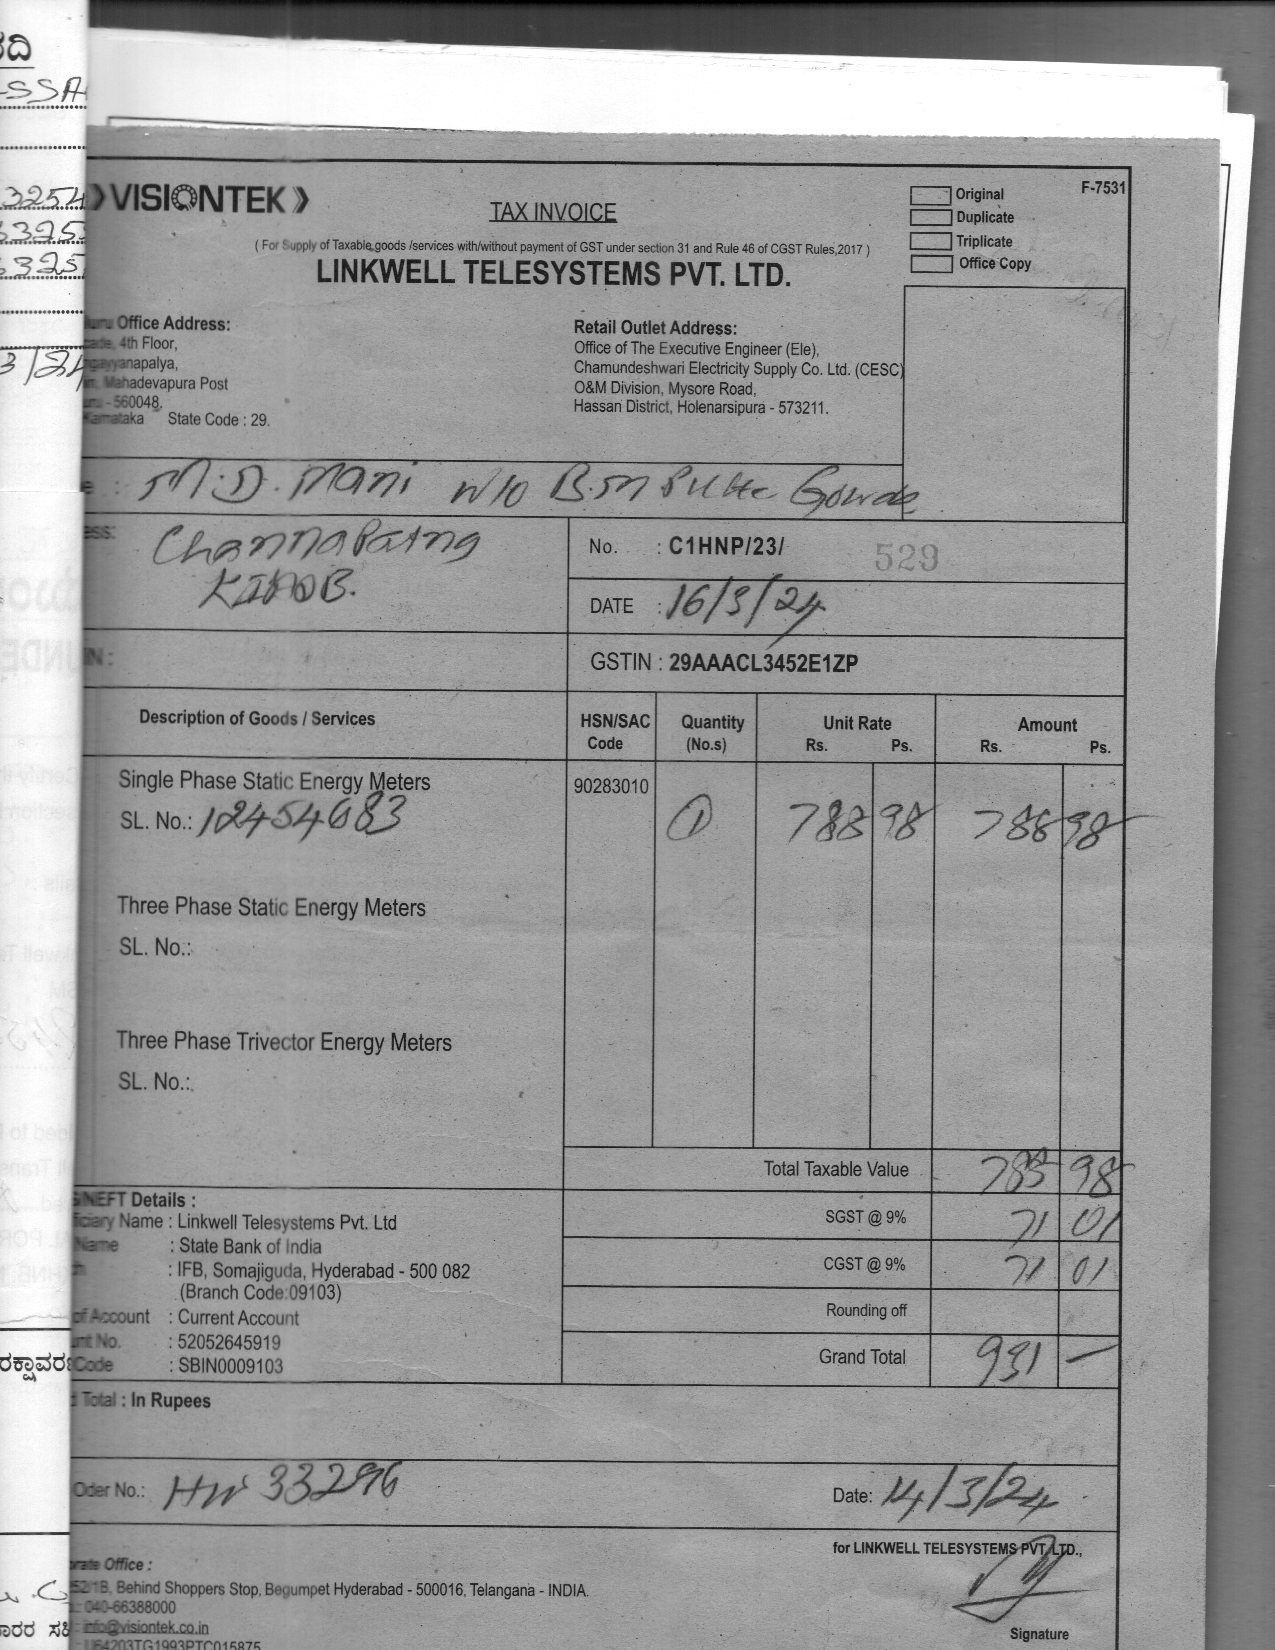 ರದಿ
-SSA
3254
3325
3325
3/24
VISIONTEK
TAX INVOICE
Original
Duplicate
Triplicate
Office Copy
F-7531
( For Supply of Taxable goods /services with/without payment of GST under section 31 and Rule 46 of CGST Rules,2017 )
LINKWELL TELESYSTEMS PVT. LTD.
Office Address:
4th Floor,
Mahadevapura Post
- 560048.
Karnataka State Code : 29.
Retail Outlet Address:
Office of The Executive Engineer (Ele),
Chamundeshwari Electricity Supply Co. Ltd. (CESC)
O&M Division, Mysore Road,
Hassan District, Holenarsipura - 573211.
: M.D. Mani W/O B.M Gowda
Channapatna
No. : C1HNP/23/ 529
DATE : 16/3/24
GSTIN : 29AAACL3452E1ZP
Description of Goods / Services
HSN/SAC Code
Quantity (No.s)
Unit Rate Rs. Ps.
Amount Rs. Ps.
Single Phase Static Energy Meters 90283010
SL. No.: 12454683 1 788 98 788 98
Three Phase Static Energy Meters
SL. No.:
Three Phase Trivector Energy Meters
SL. No.:
Total Taxable Value 788 98
SGST @ 9% 71 01
CGST @ 9% 71 01
Rounding off
Grand Total 931 —
NEFT Details :
Name : Linkwell Telesystems Pvt. Ltd
Name : State Bank of India
: IFB, Somajiguda, Hyderabad - 500 082
(Branch Code:09103)
of Account : Current Account
No. : 52052645919
Code : SBIN0009103
Total : In Rupees
Oder No.: HW 33296 Date: 14/3/24
for LINKWELL TELESYSTEMS PVT. LTD.,
Office :
Behind Shoppers Stop, Begumpet Hyderabad - 500016, Telangana - INDIA.
: 040-66388000
: info@visiontek.co.in
Signature